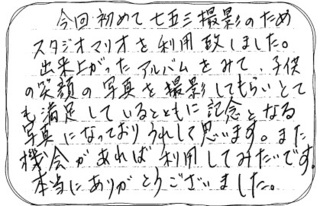 今回初めて七五三撮影のため
スタジオマリオを利用致しました。
出来上がったアルバムをみて、子供
の笑顔の写真を撮影してもらいとて
も満足しているとともに記念となる
写真になっておりうれしく思います。また
機会があれば利用してみたいです。
本当にありがとうございました。